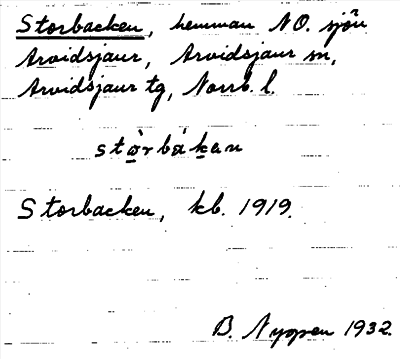 Storbacken, hemman NO. sjön
Arvidsjaur, Arvidsjaur sn,
Arvidsjaur tg, Norrb. l.
stọ̀rbákan
Storbacken, kb. 1919.
B. Nygren 1932.